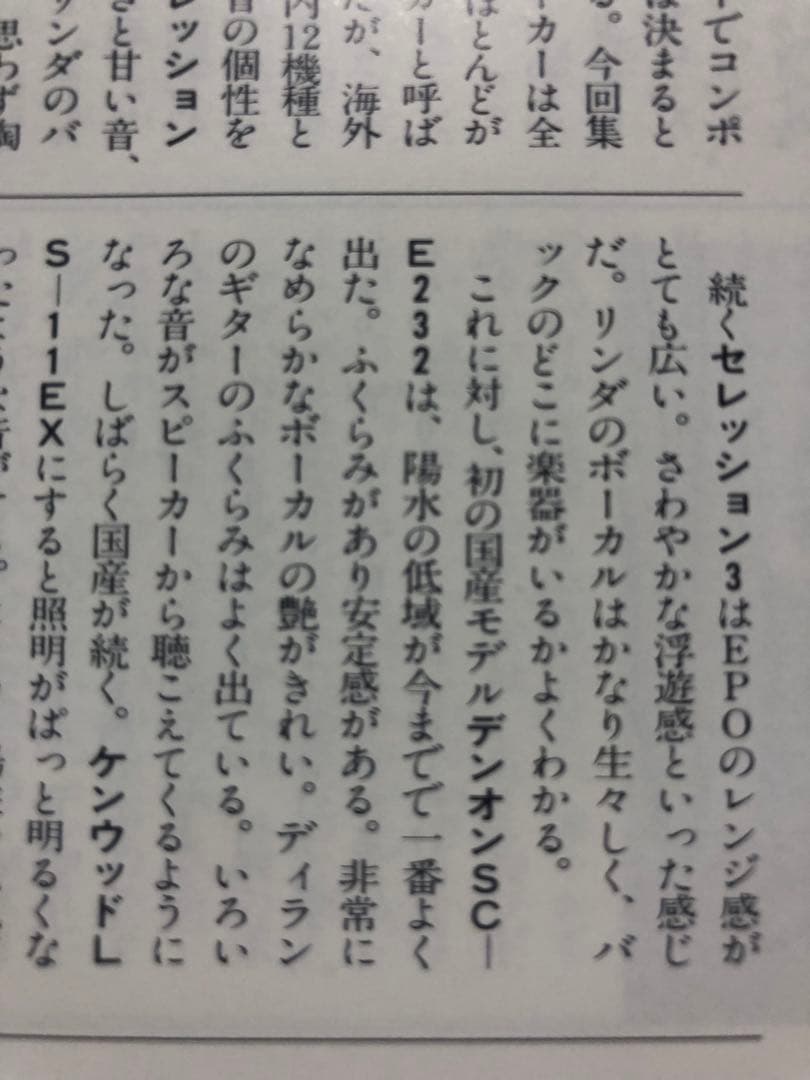 でコンポ
は決まると
る。今回集
ーカーは全
ほとんどが
カーと呼ば
だが、海外
内12機種と
音の個性を
レッション
さと甘い音、
リンダのバ
思わず陶
続くセレッション3はEPOのレンジ感が
とても広い。さわやかな浮遊感といった感じ
だ。リンダのボーカルはかなり生々しく、バ
ックのどこに楽器がいるかよくわかる。
これに対し、初の国産モデルデンオンSC—
E232は、陽水の低域が今までで一番よく
出た。ふくらみがあり安定感がある。非常に
なめらかなボーカルの艶がきれい。ディラン
のギターのふくらみはよく出ている。いろい
ろな音がスピーカーから聴こえてくるように
なった。しばらく国産が続く。ケンウッドL
S—11EXにすると照明がぱっと明るくな